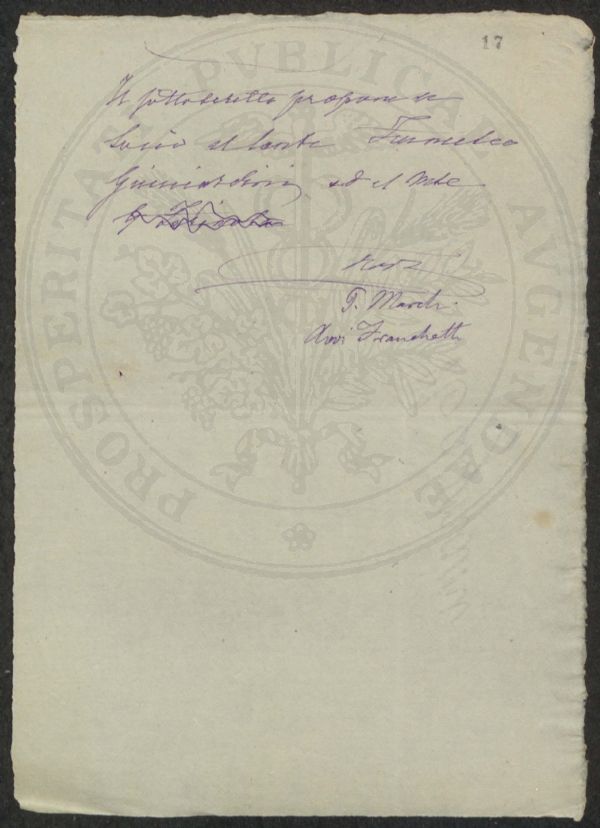 17
Il sottoscritto propone a
Socio il Conte Francesco
Guicciardini ed il Mse
P. March
Avvi Franchetti
PROSPERITATI PVBLICAE AVGENDAE